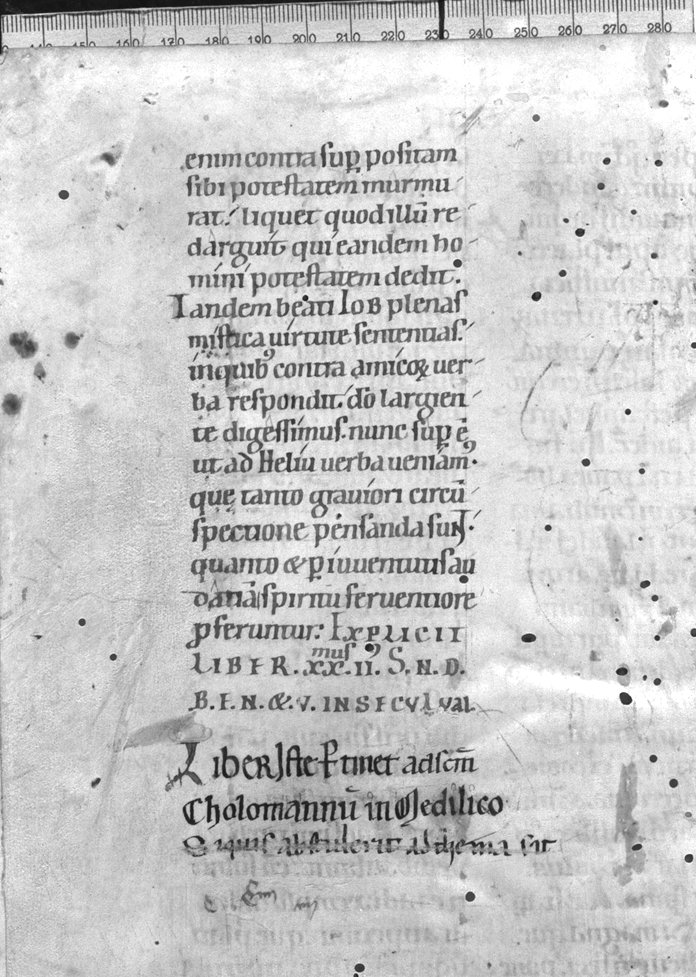 enim contra sup̱ positam
sibi potestatem murmu-
rat. liquet quod illū re-
darguit qui eandem ho-
mini potestatem dedit.
Tandem beati IOB plenas
mistica uirtute sententias.
inquib; contra amicoꝝ uer-
ba respondit. dō largien-
te digessimus. nunc sup̱ ē
ut ad Heliu uerba ueniam᷒.
quę tanto grauiori circū-
spectione pensanda sunt.
quanto & ꝑ iuuentutis au-
datiā spiritu feruentiore
ꝓferuntur: EXPLICIT
LIBER .XX.II.mus S. N. D.
B. E. N. &. V. IN SECVLVAL
Liber Iste ꝑtinet ad scm̄
Cholomannū in Medilico
Siquis abstulerit abthema sit